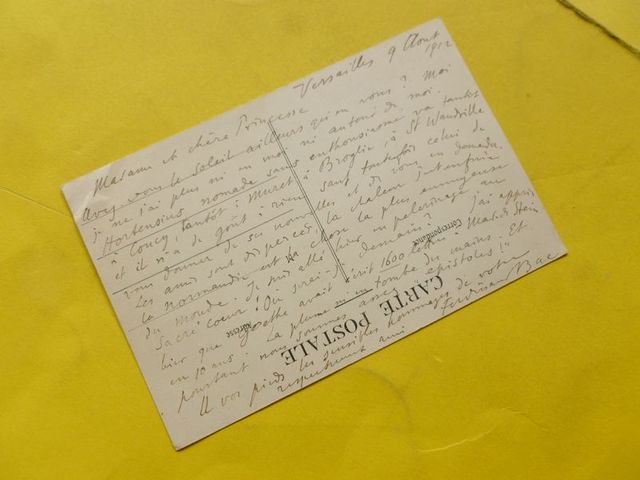 Versailles 9 Aout 1912
Madame et chère Princesse
Avez-vous le soleil ailleurs qu'en vous? Moi
je ne l'ai plus ni en moi ni autour de moi.
Hortensius nomade sans enthousiasme va tantôt
à Coucy, tantôt à Muret, à Broglie, à St Wandrille
et il n'a de goût à rien sauf toutefois celui de
vous donner de ses nouvelles et de vous en demander.
Les amis sont dispersés, la chaleur
la Normandie est la chose la plus ennuyeuse
du monde. Je suis allé hier en pelerinage au
Sacré Coeur! Où serai-je demain? J'ai appris
hier que Goethe avait écrit 1600 lettres à Mad. de Stein
en 10 ans. La plume m'en tombe des mains. Et
pourtant nous sommes assez "épistoles"!
A vos pieds les sensibles hommages de votre
respectueux ami Ferdinand Bac
CARTE POSTALE
Correspondance
Adresse